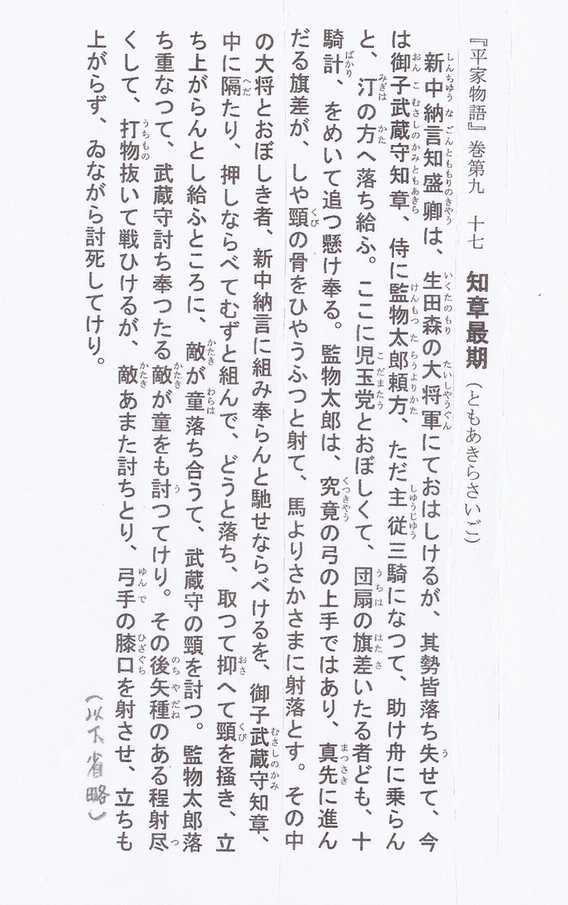 『平家物語』巻第九　十七　知章最期（ともあきらさいご）
新中納言知盛卿は、生田森の大将軍にておはしけるが、其勢皆落ち失せて、今
は御子武蔵守知章、侍に監物太郎頼方、ただ主従三騎になつて、助け舟に乗らん
と、汀の方へ落ち給ふ。ここに児玉党とおぼしくて、団扇の旗差いたる者ども、十
騎計、をめいて追つ懸け奉る。監物太郎は、究竟の弓の上手ではあり、真先に進ん
だる旗差が、しや頸の骨をひやうふつと射て、馬よりさかさまに射落とす。その中
の大将とおぼしき者、新中納言に組み奉らんと馳せならべけるを、御子武蔵守知章、
中に隔たり、押しならべてむずと組んで、どうと落ち、取つて抑へて頸を掻き、立
ち上がらんとし給ふところに、敵が童落ち合うて、武蔵守の頸を討つ。監物太郎落
ち重なつて、武蔵守討ち奉つたる敵が童をも討つてけり。その後矢種のある程射尽
くして、打物抜いて戦ひけるが、敵あまた討ちとり、弓手の膝口を射させ、立ちも
上がらず、ゐながら討死してけり。
（以下省略）